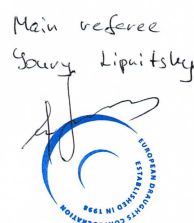 Main referee
Youry Lipnitsky
EUROPEAN DRAUGHTS CONFEDERATION
ESTABLISHED IN 1998